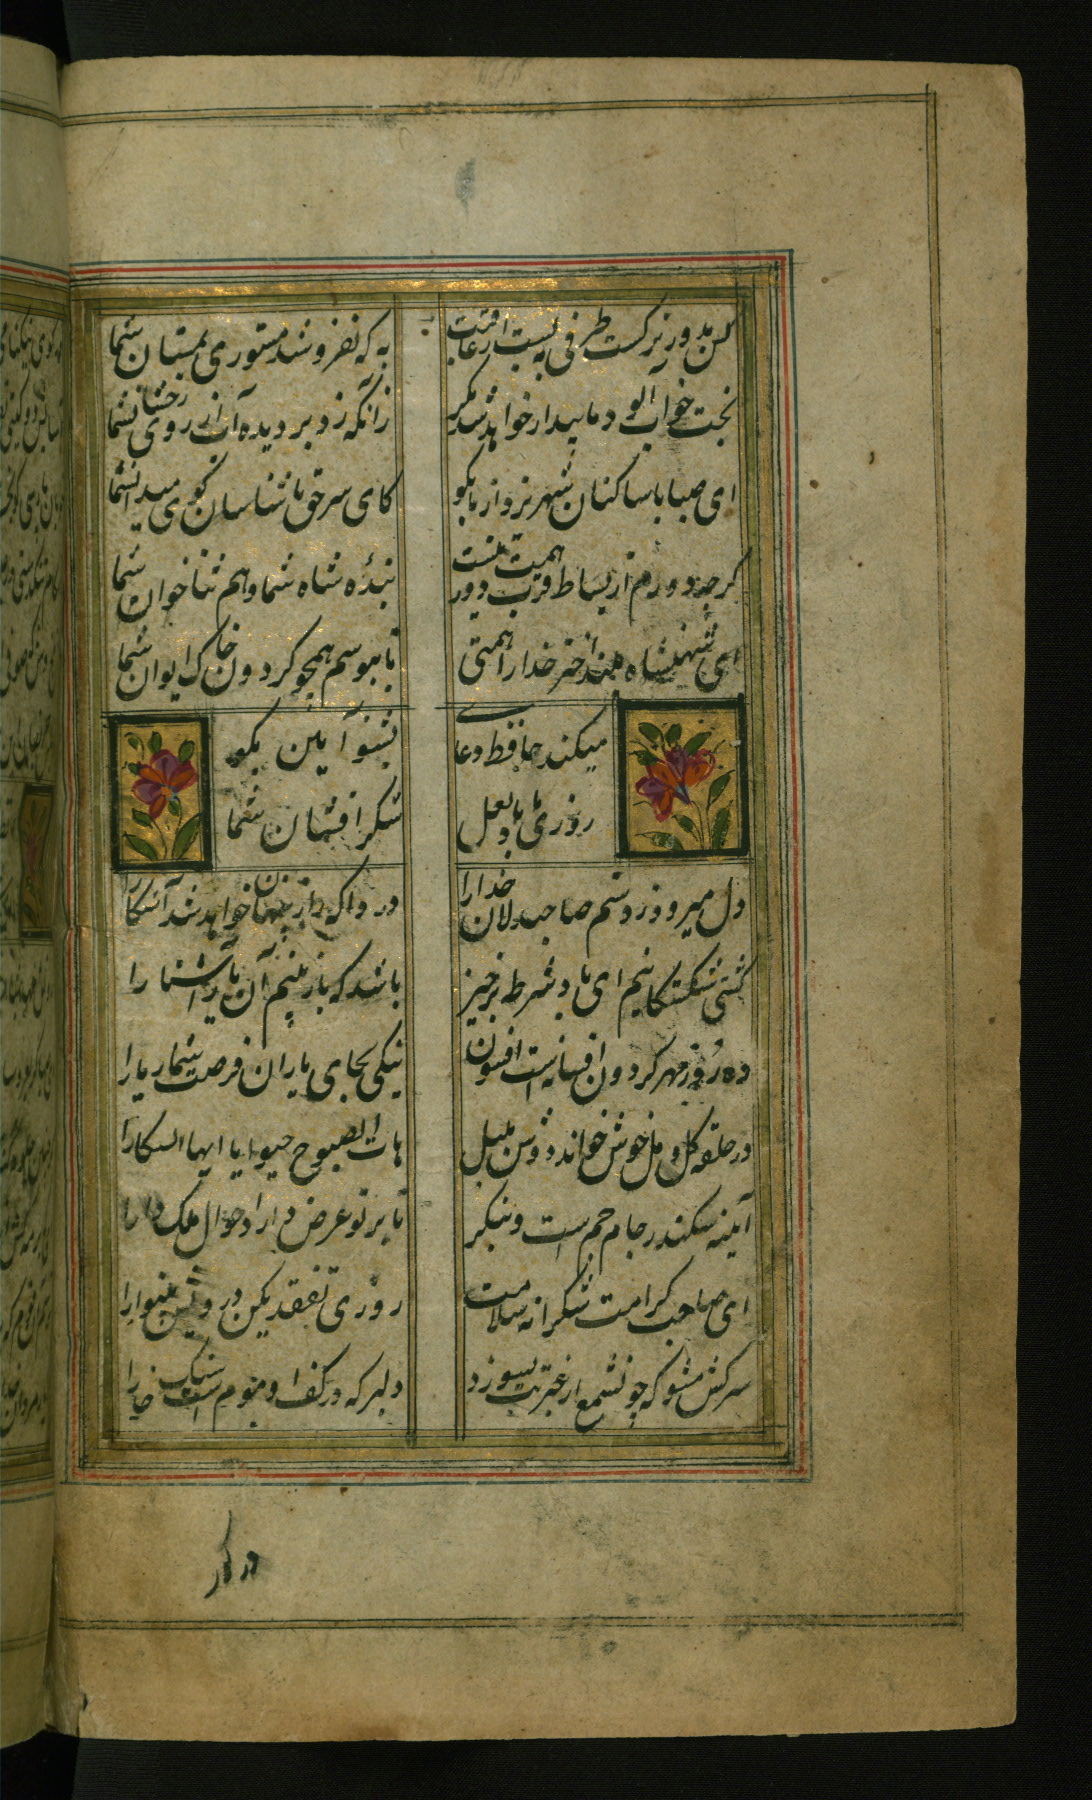 کس بدور نرکست طرفی نه بست از عافیت
به که نفروشد مستوری بمستان شما
بخت خواب آلود ما بیدار خواهد شد مکر
زانکه زد بر دیده آب از روی رخشان شما
ای صبا با ساکنان شهر یزد از ما بکو
کای سر حق ناشناسان کوی میدان شما
کرچه دورم از بساط قرب همت نیست دور
بنده شاه شما و هم ثنا خوان شما
ای شهنشاه بلند اختر خدارا همتی
تا ببوسم همچو کردون خاک ایوان شما
میکند حافظ دعایی
بشنو آمین بکو
روزی ما باد لعل
شکر افشان شما
دل میرود ز دستم صاحبدلان خدارا
دردا که راز پنهان خواهد شد آشکارا
کشتی شکستکانیم ای باد شرطه برخیز
باشد که باز بینیم آن یار آشنا را
ده روزه مهر کردون افسانه است افسون
نیکی بجای یاران فرصت شمار یارا
در حلقه کل و مل خوش خواند دوش بلبل
هات الصبوح حیوا یا ایها السکارا
آینه سکندر جام جم است و بنکر
تا بر تو عرض دارد احوال ملک دارا
ای صاحب کرامت شکرانه سلامت
روزی تفقدی کن درویش بینوا را
سرکش مشو که چون شمع از غیرتت بسوزد
دلبر که در کف او موم است سنک خارا
در کو